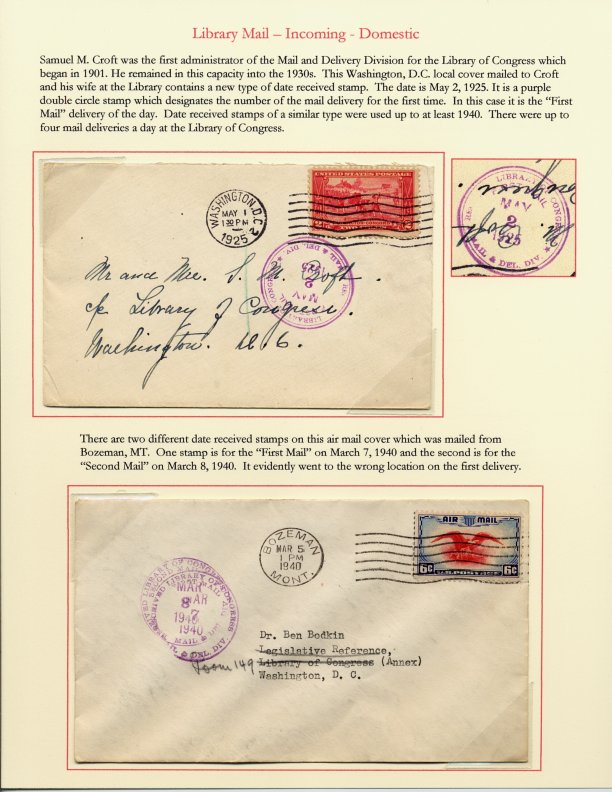 Library Mail – Incoming - Domestic
Samuel M. Croft was the first administrator of the Mail and Delivery Division for the Library of Congress which
began in 1901. He remained in this capacity into the 1930s. This Washington, D.C. local cover mailed to Croft
and his wife at the Library contains a new type of date received stamp. The date is May 2, 1925. It is a purple
double circle stamp which designates the number of the mail delivery for the first time. In this case it is the “First
Mail” delivery of the day. Date received stamps of a similar type were used up to at least 1940. There were up to
four mail deliveries a day at the Library of Congress.
UNITED STATES POSTAGE
WASHINGTON, D.C. 2
MAY 1
1:30 PM
1925
LIBRARY CONGRESS
MAY
2
1925
MAIL & DEL. DIV.
Mr and Mrs. S. M. Croft.
c/o Library of Congress.
Washington. D.C.
LIBRARY CONGRESS
MAY
2
1925
MAIL & DEL. DIV.
There are two different date received stamps on this air mail cover which was mailed from
Bozeman, MT. One stamp is for the “First Mail” on March 7, 1940 and the second is for the
“Second Mail” on March 8, 1940. It evidently went to the wrong location on the first delivery.
BOZEMAN
MAR 5
1 PM
1940
MONT.
AIR MAIL
6c 6c
U.S. POSTAGE
LIBRARY OF CONGRESS
SECOND MAIL
MAR
MAR
8
7
1940
1940
MAIL &
& DEL. DIV.
Dr. Ben Bodkin
Legislative Reference,
Library of Congress (Annex)
Room 149
Washington, D. C.